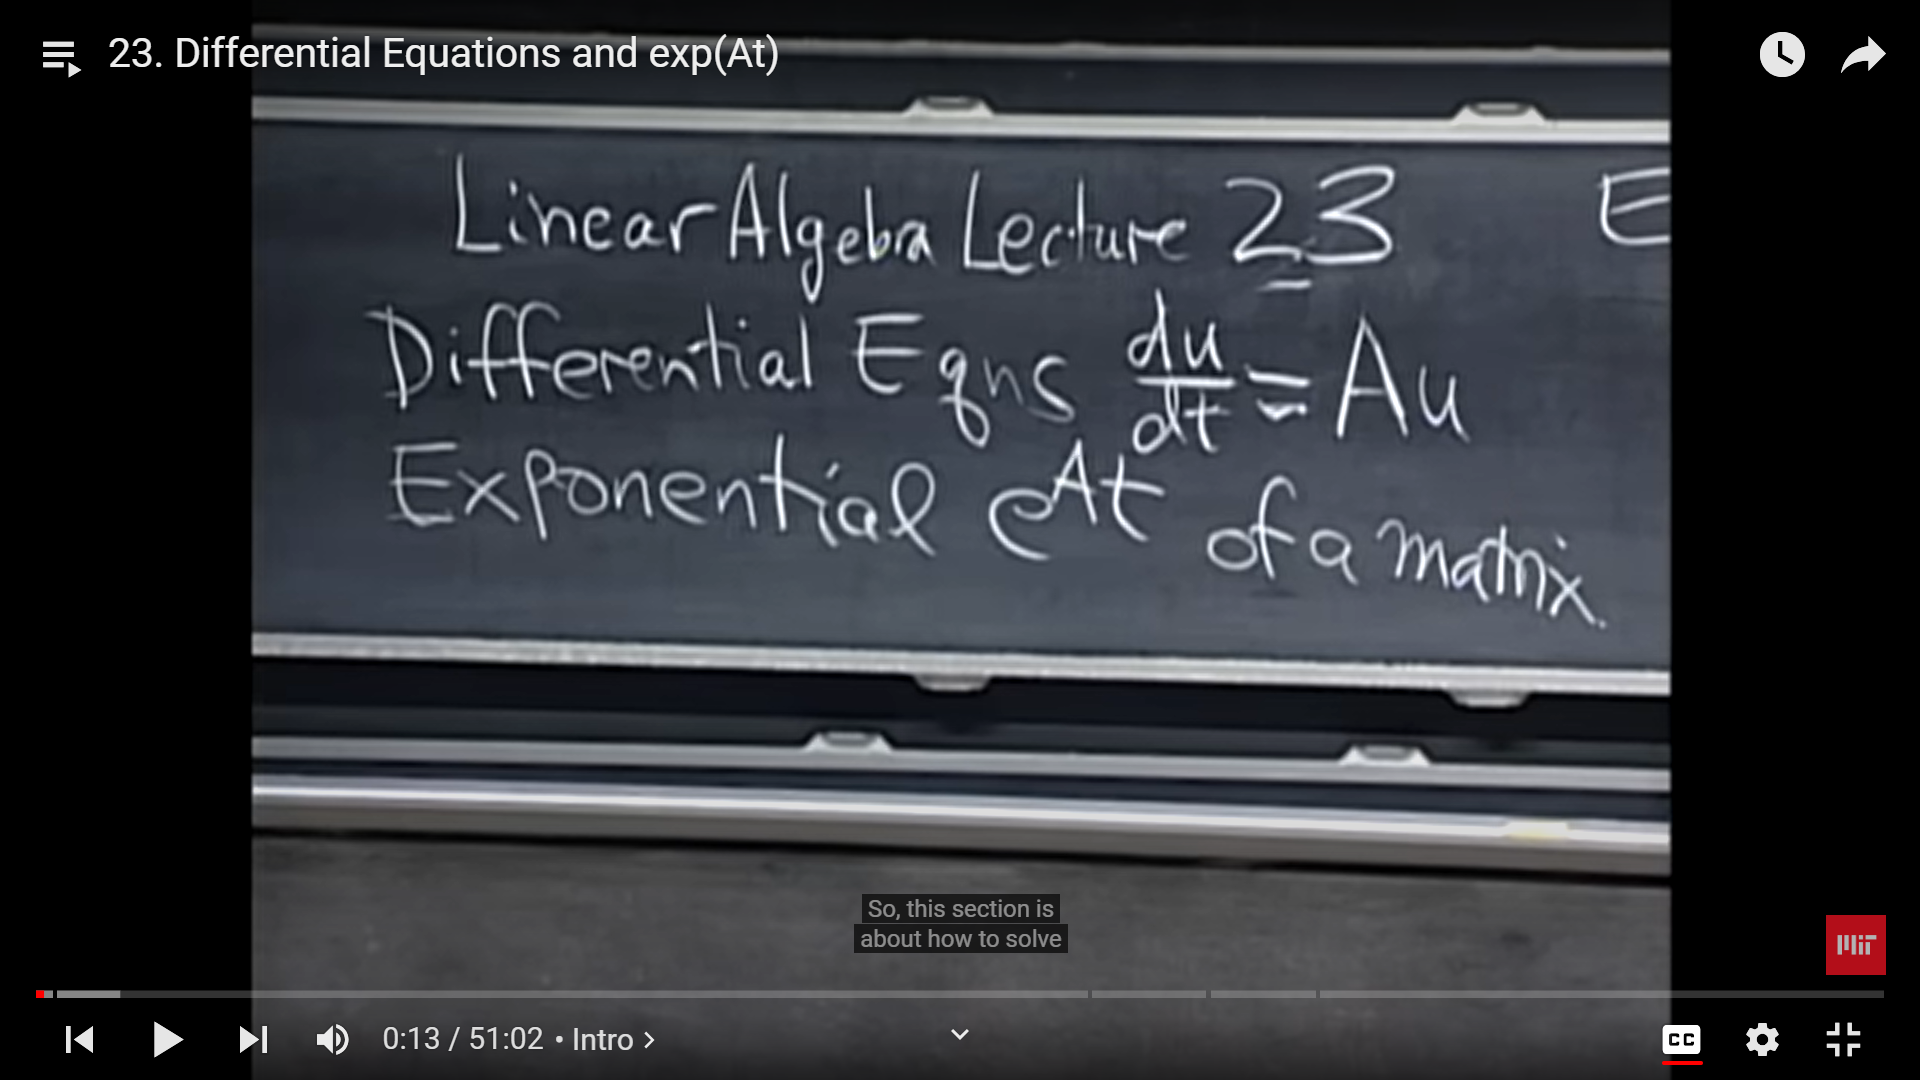 23. Differential Equations and exp(At)
Linear Algebra Lecture 23 E
Differential Eqns du/dt = Au
Exponential e^At of a matrix.
So, this section is
about how to solve
MIT
0:13 / 51:02 • Intro >
CC